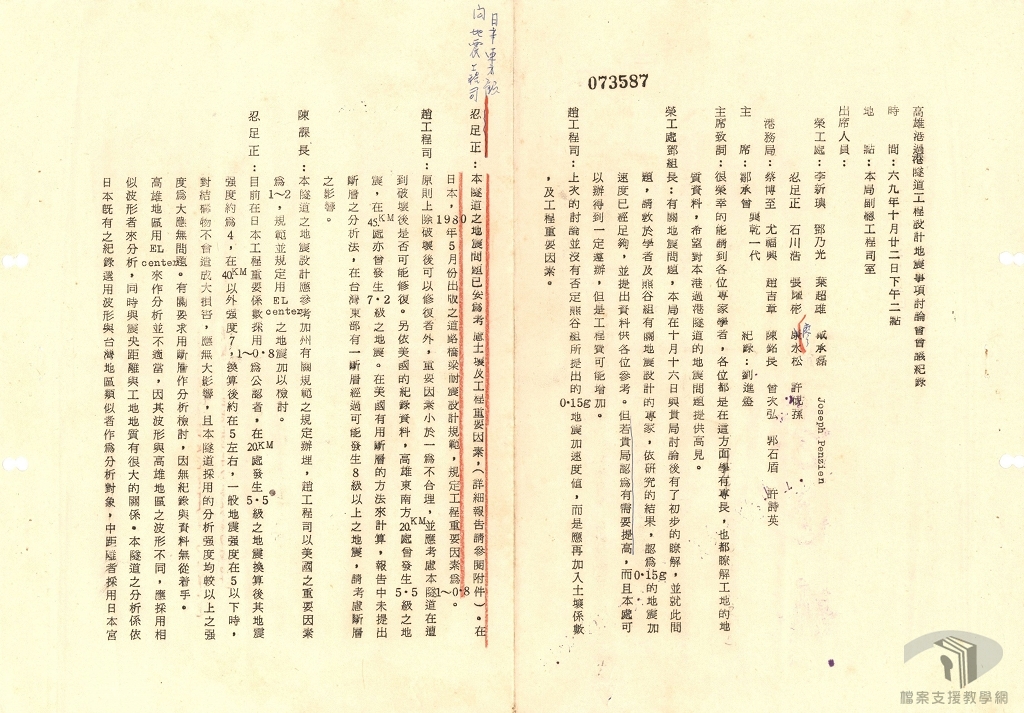 073587
高雄港過港隧道工程設計地震事項討論會會議紀錄
時　間：六九年十月廿二日下午二點
地　點：本局副總工程司室
出席人員：
榮工處：李新璜　鄧乃光　葉超雄　臧承磊　Joseph Penzien
忍足正　石川浩　張堰彬　廖水松　許　孫
港務局：蔡博至　尤福興　趙吉章　陳銘長　曾次弘　郭石盾　許詩英
吳乾一代
主　席：鄒承曾　紀錄：劉進盛
主席致詞：很榮幸的能請到各位專家學者，各位都是在這方面學有專長，也都瞭解工地的地
質資料，希望對本港過港隧道的地震問題提供高見。
榮工處鄧組長：有關地震問題，本局在十月十六日與貴局討論後有了初步的瞭解，並就此問
題，請敎於學者及熊谷組有關地震設計的專家，依研究的結果，認爲0·15g的地震加
速度已經足夠，並提出資料供各位參考。但若貴局認爲有需要提高，而且本處可
以辦得到一定遵辦，但是工程費可能增加。
趙工程司：上次的討論並沒有否定熊谷組所提出的0·15g地震加速度值，而是應再加入土壤係數
，及工程重要因素。
日本
向地震工程司
忍足正：本隧道之地震問題已妥爲考慮土壤及工程重要因素，（詳細報告請參閱附件）。在
日本，1980年5月份出版之道路橋梁耐震設計規範，規定工程重要因素爲1～0·8。
趙工程司：原則上除破壞後可以修復者外，重要因素小於一爲不合理，並應考慮本隧道在遭
到破壞後是否可能修復。另依美國的紀錄資料，高雄東南方20KM處曾發生5·5級之地
震，在45KM處亦曾發生7·2級之地震。在美國有用斷層的方法來計算，報告中未提出
斷層之分析法，在台灣東部有一斷層經過可能發生8級以上之地震，請考慮斷層
之影響。
陳課長：本隧道之地震設計應參考加州有關規範之規定辦理，趙工程司以美國之重要因素
爲1～2，規範並規定用EL center之地震加以檢討。
忍足正：目前在日本工程重要係數採用1～0·8爲公認者，在20KM處發生5·5級之地震換算後其地震
強度約爲4，在40KM以外強度7，換算後約在5左右，一般地震强度在5以下時，
對結構物不會造成大損害，應無大影響，且本隧道採用的分析强度均較以上之强
度爲大應無問題。有關要求用斷層作分析檢討，因無紀錄與資料無從着手。
高雄地區用EL center來作分析並不適當，因其波形與高雄地區之波形不同，應採用相
似波形者來分析，同時與震央距離與工地地質有很大的關係。本隧道之分析係依
日本旣有之紀錄選用波形與台灣地區類似者作爲分析對象，中距離者採用日本宮
檔案支援教學網